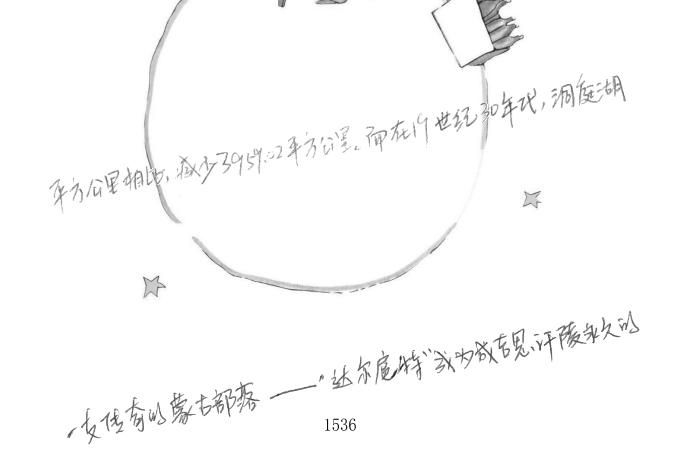 平方公里相比，减少3959.02平方公里。而在19世纪30年代，洞庭湖
一支传奇的蒙古部落——“达尔扈特”或为成吉思汗陵永久的
1536